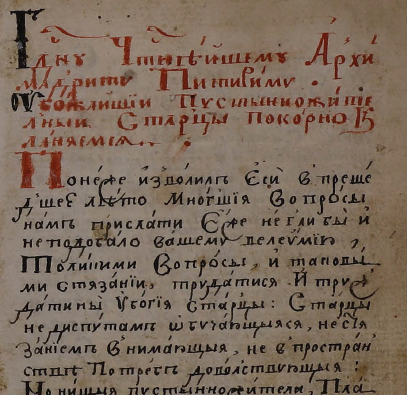 Гдну Чтнѣйшему Архи
мандриту Питириму.
Убожайшіи Пустынножите
лныи Старцы покорно К
ланяемся
Понеже изволилъ Еси в преше
дшее лѣто Многшія Вопросы
намъ прислати Еже не бы и
не подобало вашему велеумію,
Толикими Вопросы, и таковы
ми стязаніи, труждатися. И тру
датины Убогія Старцы: Старцы
не диспутамъ ѡбучающыяся, не
заніемъ внимающыя, не в простран
ствѣ Потребъ доволствующыя:
Но нищыя пустынножители, Пла